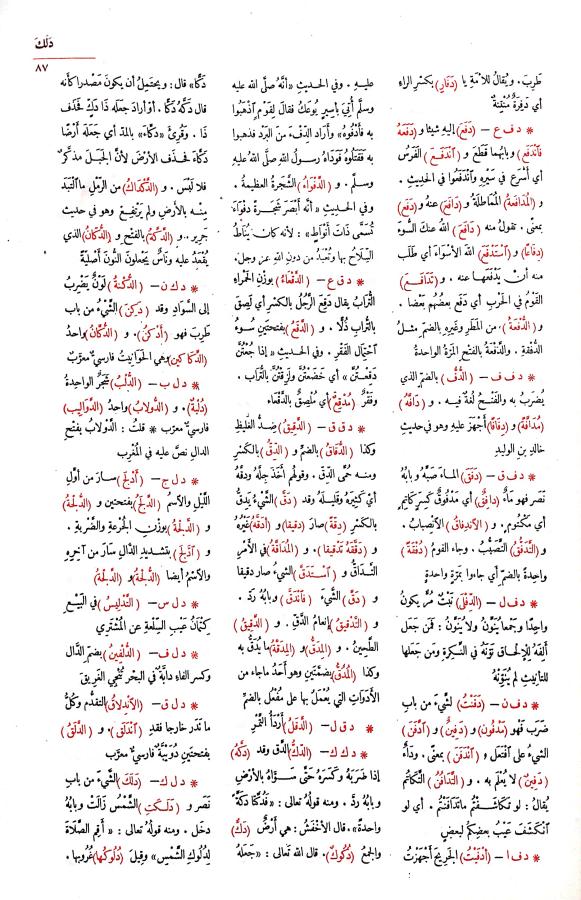 دَلَكَ
٨٧
طَرِبَ . ويُقالُ للأَمَةِ يا (دَفَارِ) بكسْرِ الراءِ
أي دَفِرَةٌ مُنْتِنَةٌ
* د ف ع – (دَفَعَ) إليه شيئا و (دَفَعَهُ
فانْدَفَعَ) وبابُهما قَطَعَ و (انْدَفَعَ) الفَرَسُ
أي أَسْرَعَ في سَيْرِهِ وانْدَفَعُوا في الحديثِ .
و (المُدَافَعَةُ) المُمَاطَلَةُ و (دافَعَ) عنهُ و (دَفَعَ)
بمعنًى . تقولُ منه (دافَعَ) اللهُ عنكَ السُّوءَ
(دِفاعًا) و (اسْتَدْفَعَ) اللهَ الأَسْواءَ أي طَلَبَ
منه أن يَدْفَعَها عنه . و (تَدافَعَ)
القَوْمُ في الحَرْبِ أي دَفَعَ بعضُهم بعضًا .
و (الدُّفْعَةُ) . من المَطَرِ وغَيرِهِ بالضَّمِ مثلُ
الدُّفْقةِ . والدَّفْعَةُ بالفتحِ المَرّةُ الواحدةُ
* د ف ف – (الدُّفُّ) بالضمِ الذي
يُضْرَبُ به والفَتْحُ لُغَةٌ فيه . و (دَافَّهُ
مُدَافَّةً) و (دِفَافًا) أَجْهَزَ عليهِ وهو في حديثِ
خالدِ بنِ الوليدِ
* د ف ق – (دَفَقَ) الماءَ صَبَّهُ وبابُهُ
نَصَر فهو ماءٌ (دافِقٌ) أي مَدْفُوقٌ كَسِرٍّ كاتِمٍ
أي مَكْتُومٍ . و (الاندِفاقُ) الانْصِبابُ .
و (التَّدَفُّقُ) التَّصَبُّبُ . وجاء القومُ (دُفْقَةً)
واحدةً بالضمِ أي جاءوا بمَرّةٍ واحدةٍ
* د ف ل – (الدِّفْلَى) نَبْتٌ مُرٌّ يكونُ
واحِدًا وجَمْعا يُنَوَّنُ ولا يُنَوَّنُ : فَمَن جَعَلَ
أَلِفَهُ للإلحاقِ نَوّنَهُ في النَّكِرَةِ ومَنْ جَعَلها
للتأنيثِ لم يُنَوِّنْهُ
* د ف ن – (دَفَنْتُ) الشيءَ من بابِ
ضَرَبَ فهو (مَدْفونٌ) و (دَفِينٌ) و (ادَّفَنَ)
الشيءُ على افْتَعَلَ و (انْدَفَنَ) بمعنًى . ودَاءٌ
(دَفِينٌ) لا يُعْلَمُ به . و (التَّدافُنُ) التَّكاتُمُ
يُقالُ : لو تَكاشَفْتُمْ ما تَدافَنْتُمْ . أي لو
انْكَشَفَ عَيْبُ بعضِكم لبعضٍ
* د ف ا – (أَدْفَيْتُ) الجَرِيحَ أَجْهَزْتُ
عليهِ . وفي الحديثِ «أَنَّهُ صلّى الله عليه
وسلّم أُتِيَ بأَسِيرٍ يُوعَكُ فقالَ لِقَوْمٍ اذْهَبُوا
به فأَدْفُوهُ» وأَرادَ الدِّفْءَ من البَرْدِ فذهبوا
به فقَتَلُوهُ فَوَدَاهُ رسولُ الله صلّى الله عليه
وسلّم . و (الدَّفْوَاءُ) الشَّجَرَةُ العظيمةُ .
وفي الحديثِ «أنه أَبْصَرَ شَجَرَةً دَفْوَاءَ
تُسَمَّى ذَاتَ أَنْوَاطٍ» : لأنه كانَ يُنَاطُ
السِّلاحُ بها وتُعْبَدُ من دونِ اللهِ عزّ وجلّ.
* د ق ع – (الدَّقْعاءُ) بوَزْنِ الحَمْراءِ
التُّرابُ يقالُ دَقِعَ الرَّجُلُ بالكَسْرِ أي لَصِقَ
بالتُّرابِ ذُلًّا . و (الدَّقَعُ) بفتحتَين سُوءُ
احْتِمالِ الفَقْرِ . وفي الحديثِ «إذا جُعْتُنَّ
دَقِعْتُنَّ» أي خَضَعْتُنَّ ولَزِقْتُنَّ بالتُّرابِ .
وفَقْرٌ (مُدْقِعٌ) أي مُلْصِقٌ بالدَّقْعاءِ
* د ق ق – (الدَّقِيقُ) ضِدُّ الغَلِيظِ
وكذا (الدُّقَاقُ) بالضمِ و (الدِّقُّ) بالكَسْرِ
ومنه حُمَّى الدِّق . وقولُهم أَخَذَ جِلَّهُ ودِقَّهُ
أيْ كَثِيرَهُ وقَلِيلَهُ وقد (دَقَّ) الشَّيْءُ يَدِقُّ
بالكَسْرِ (دِقَّةً) صارَ (دَقيقا) و (أَدَقَّهُ) غَيْرُهُ
و (دَقَّقَهُ تَدْقيقا) . و (المُدَاقَّةُ) في الأَمْرِ
التَّدَاقُّ و (اسْتَدَقَّ) الشيءُ صار دقيقا
و (دَقَّ) الشيءَ (فانْدَقَّ) وبابُهُ رَدَّ .
و (التَّدْقِيقُ) إنعامُ الدَّقِّ . و (الدَّقِيقُ)
الطَّحِينُ . و (المِدَقُّ) و (المِدَقَّةُ) ما يُدَقُّ به
وكذا (المُدُقُّ) بضَمَّتَينِ وهو أَحَدُ ماجاء من
الأَدَواتِ التي يُعْمَلُ بها على مُفْعُلٍ بالضمِّ
* د ق ل – (الدَّقَلُ) أَرْدَأُ التَّمْرِ
* د ك ك – (الدَّكُّ) الدَّقُّ وقد (دَكَّهُ)
إذا ضَرَبَهُ وكَسَرَهُ حَتّى سَوّاهُ بالأَرْضِ
وبابُهُ رَدَّ . ومنه قولُهُ تعالى : «فَدُكَّتَا دَكَّةً
واحدةً». قال الأَخْفَشُ : هي أرْضٌ (دَكٌّ)
والجمعُ (دُكُوكٌ). قال الله تعالى : «جَعَلَهُ
دَكًّا» قال : ويحتَمِلُ أن يكونَ مَصْدرا كأنه
قال دَكَّهُ دَكًّا . أو أرادَ جَعَلَهُ ذا دَكٍّ فحَذَف
ذَا . وقُرِئَ «دَكَّاءَ» بالمدِّ أي جَعَلَهُ أَرْضًا
دَكَّاءَ فحَذَفَ الأَرْضَ لأَنَّ الجَبَلَ مذكَّرٌ
فلا لَبْسَ . و (الدَّكْدَاكُ) من الرَّمْلِ ما الْتَبَدَ
مِنْه بالأَرضِ ولم يَرْتَفِعْ وهو في حديثِ
جَرِيرٍ . و (الدَّكَّةُ) بالفتحِ و (الدُّكَّانُ) الذي
يُقْعَدُ عليه وناسٌ يجعلونَ النُّونَ أصْلِيَّةً
* د ك ن – (الدُّكْنَةُ) لَوْنٌ يَضْرِبُ
إلى السَّوَادِ وقد (دَكِنَ) الشَّيْءُ من باب
طَرِبَ فهو (أَدْكَنُ). و (الدُّكَّانُ) واحدُ
(الدَّكَاكِينِ) وهي الحَوانيتُ فارِسيٌّ معرَّبٌ
* د ل ب – (الدُّلْبُ) شَجَرٌ الواحِدةُ
(دُلْبَةٌ). و (الدُّولابُ) واحدُ (الدَّوَالِيبِ)
فارسيٌّ معرَّب * قلتُ : الدَّوْلابُ بفتحِ
الدالِ نصّ عليه في المُغْرِبِ
* د ل ج – (أَدْلَجَ) سارَ من أوّلِ
اللَّيْلِ والاسمُ (الدَّلَجُ) بفتحتين و (الدُّلْجَةُ)
و (الدَّلْجَةُ) بوزنِ الجُرْعةِ والضَّرْبةِ .
و (ادَّلَجَ) بتشديدِ الدّالِ سارَ من آخِرِهِ
والاسمُ أيضا (الدَّلْجَةُ) و (الدُّلْجَةُ)
* د ل س – (التَّدْلِيسُ) في البَيْعِ
كِتْمانُ عَيْبِ السِّلْعةِ عن المُشْتَرِي
* د ل ف – (الدُّلْفِينُ) بضمِ الدّالِ
وكسرِ الفاءِ دابّةٌ في البَحْرِ تُنَجّي الغَرِيقَ
* د ل ق – (الاندِلاقُ) التقدُّم وكلُّ
ما نَدَر خارجا فقدِ (انْدَلَقَ). و (الدَّلَقُ)
بفتحتينِ دُوَيْبَّةٌ فارسيٌّ معرّب
* د ل ك – (دَلَكَ) الشيءَ من بابِ
نَصَر و (دَلَكَتِ) الشَّمْسُ زَالَتْ وبابُهُ
دخَل . ومنه قولُهُ تعالى : «أَقِمِ الصَّلاةَ
لِدُلوكِ الشَّمْسِ» وقِيلَ (دُلُوكُها) غُروبُها .